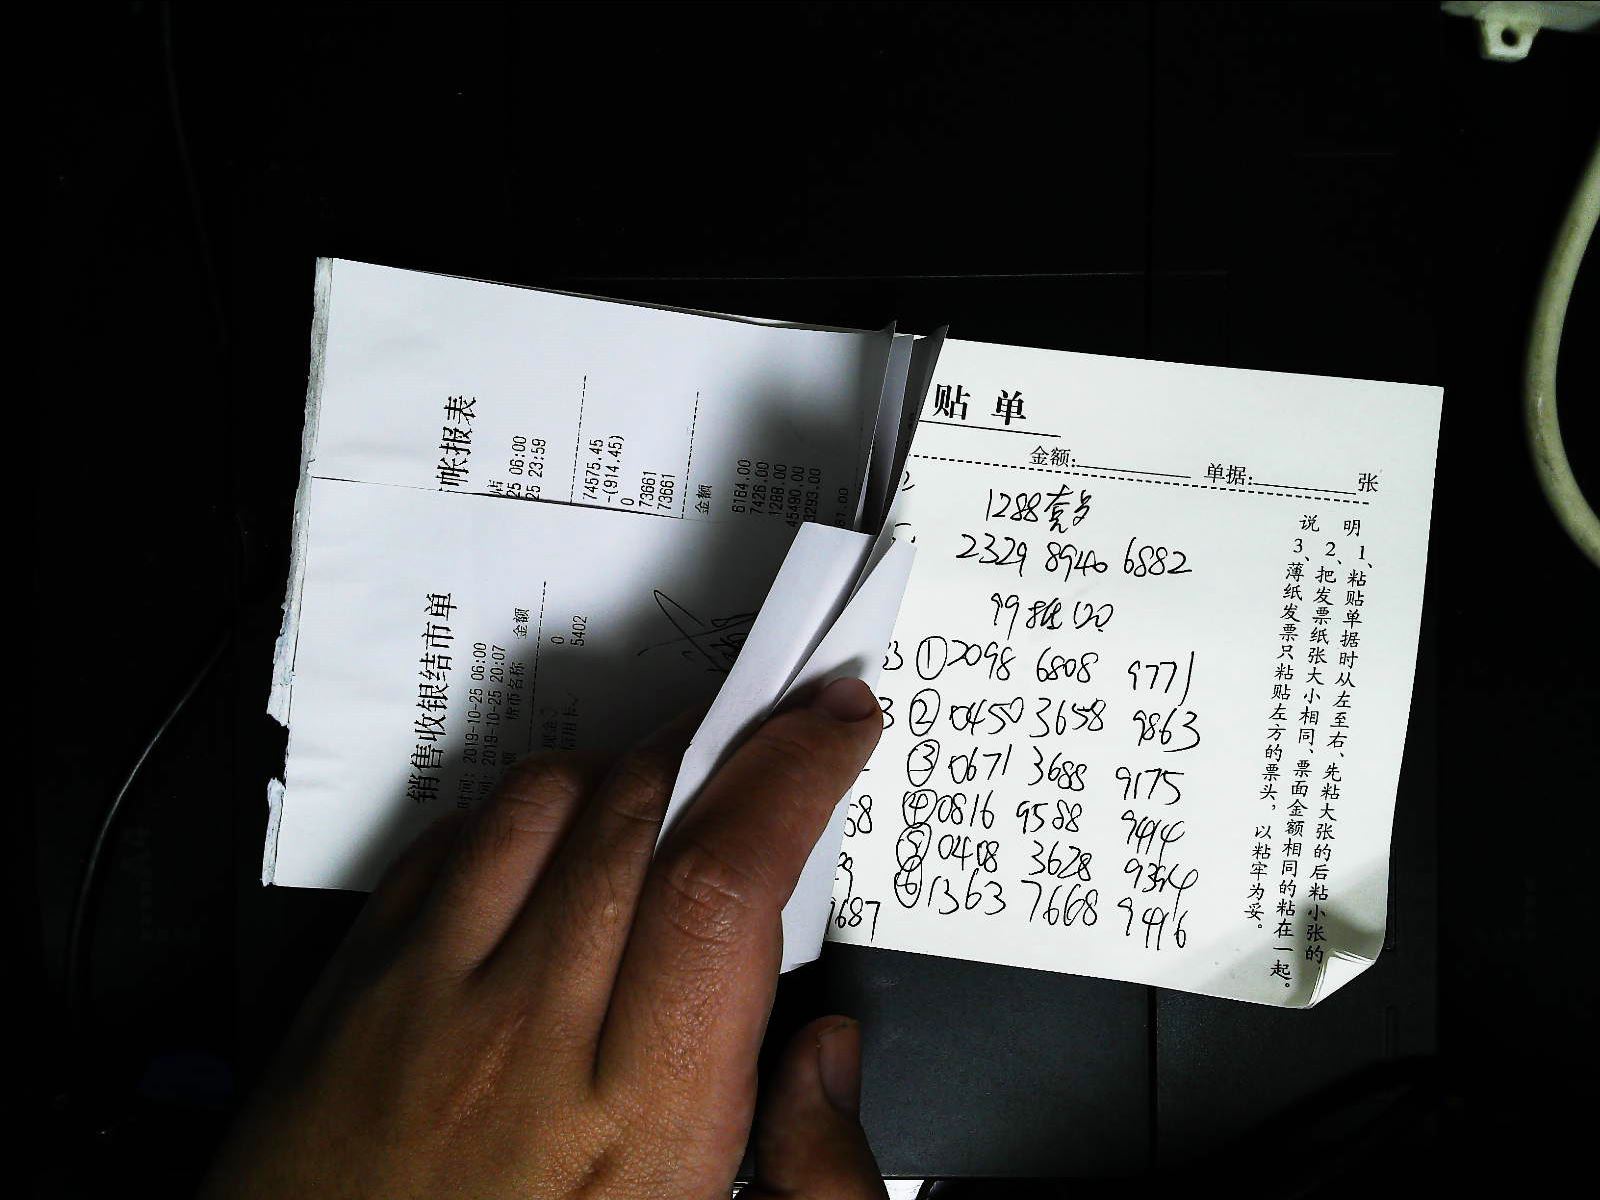 帐报表
店
25 06:00
25 23:59
74575.45
-(914.45)
0
73661
73661
金额
6164.00
7426.00
1288.00
45490.00
8293.00
61.00
销售收银结市单
时间: 2019-10-25 06:00
时间: 2019-10-25 20:07
货币名称 金额
现金 0
信用卡 5402
贴 单
金额: 单据: 张
1288套
2329 8940 6882
① 2098 6808 9771
② 0450 3658 9863
③ 0671 3688 9175
④ 0816 9588 9414
⑤ 0408 3628
⑥ 1363 7668 9416
9687
说明
1、粘贴单据时从左至右、先粘大张的后粘小张的
2、把发票纸张大小相同、票面金额相同的粘在一起。
3、薄纸发票只粘贴左方的票头，以粘牢为妥。